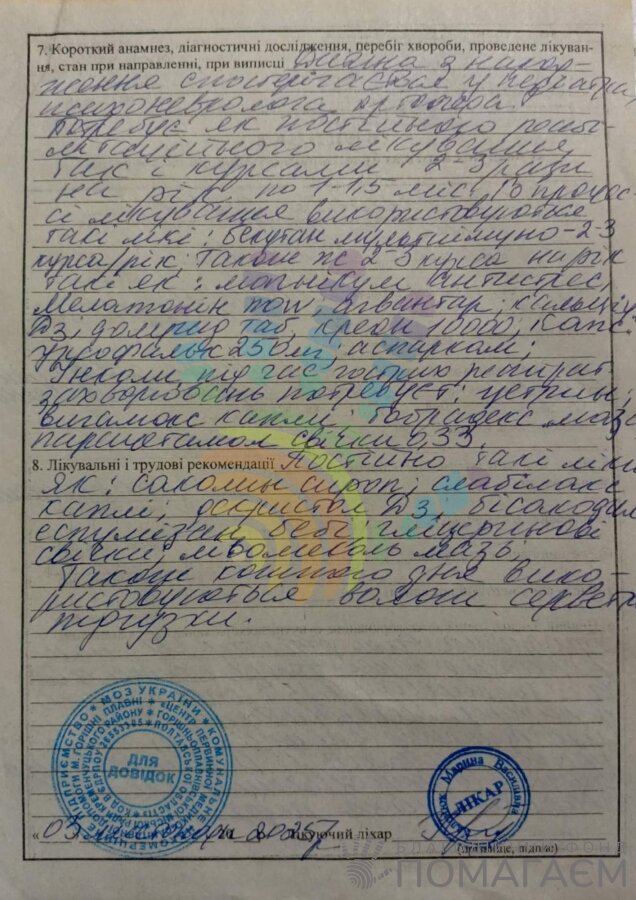 7. Короткий анамнез, діагностичні дослідження, перебіг хвороби, проведене лікуван-
ня, стан при направленні, при виписці з народ-
ження спостерігається у педіатра,
психоневролога, ортопеда.
Потребує як постійного реабі-
літаційного лікування
так і курсами 2-3 рази
на рік по 1-1,5 міс. В процес
сі лікування використовуються
такі ліки: мультиімуно-2-3
курса/рік; Також ж 2-3 курса на рік
такі як: антистрес,
Мелатонін кальцій
Д3; таб, креон 10000, капс.
Урсофальк 250мг, аспаркам;
Інколи під час гострих респират.
захворювань потребує:
вигамокс каплі, тобрадекс мазь
парацетамол свічки 0,33.
8. Лікувальні і трудові рекомендації Постійно такі ліки
як: сироп; слабілакс
каплі; Д3, бісакодил
еспумізан бебі гліцеринові
свічки, левомеколь мазь.
Також кожного дня вико-
ристовуються вологі серветк
підгузки.
МОЗ УКРАЇНИ
КОМУНАЛЬНЕ
ПІДПРИЄМСТВО
ДЛЯ
ДОВІДОК
Марина Василівна
ЛІКАР
« 03 Лікуючий лікар
(прізвище, підпис)
БЛАГОДІЙНИЙ ФОНД
ПОМАГАЄМ